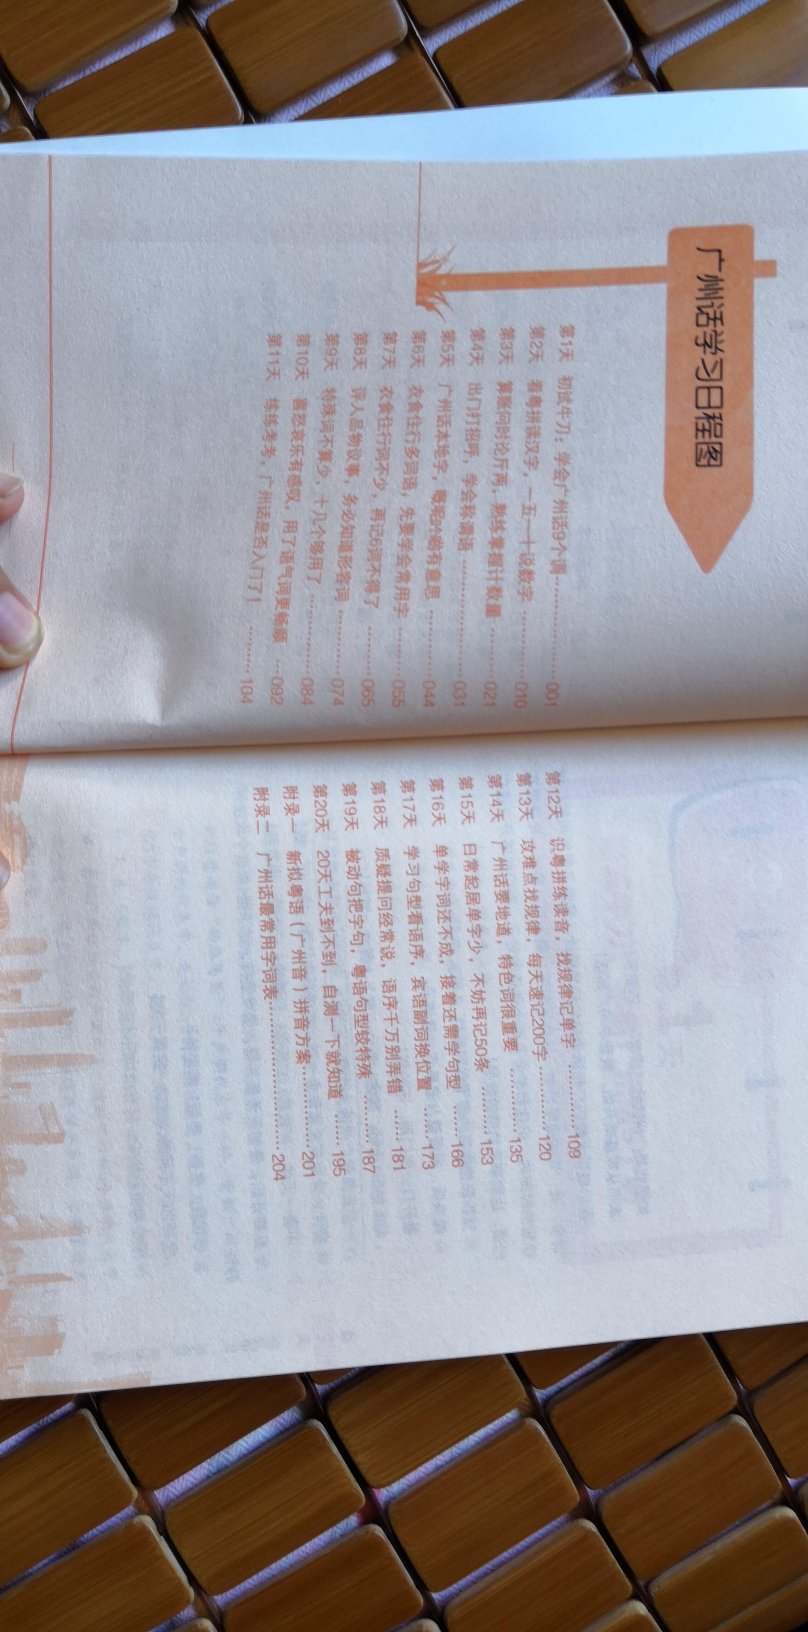 广州话学习日程图
第1天 初试牛刀，学会广州话9个调…………………001
第2天 看粤拼读汉字，一五一十说数字…………010
第3天 算账问时论斤两，熟练掌握计数量…………021
第4天 出门打招呼，学会称谓语…………………031
第5天 广州话本地字，嘅啲吖嘢有意思…………044
第6天 衣食住行多词语，先要学会常用字…………055
第7天 衣食住行词不少，再记9词不得了…………065
第8天 评人品物议事，务必知道形容词…………074
第9天 特殊词不算少，十几个够用了………………084
第10天 喜怒哀乐有感叹，用了语气词更畅顺 …092
第11天 练练考考，广州话是否入门了！ ………104
第12天 识粤拼练读音，找规律记单字 …………109
第13天 攻难点找规律，每天速记200字…………120
第14天 广州话要地道，特色词很重要 …………135
第15天 日常起居单字少，不妨再记50条 ………153
第16天 单学字词还不成，接着还需学句型 ……166
第17天 学习句型看语序，宾语副词换位置 ……173
第18天 质疑提问经常说，语序千万别弄错 ……181
第19天 被动句把字句，粤语句型较特殊 ………187
第20天 20天工夫到不到，自测一下就知道 ……195
附录一 新拟粤语（广州音）拼音方案……………201
附录二 广州话最常用字词表………………………204